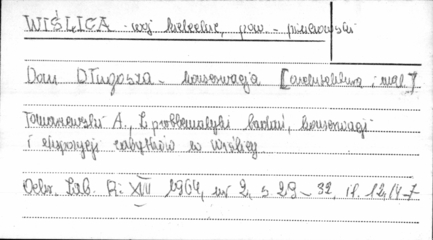 WIŚLICA - woj. kieleckie, pow. - pińczowski
Dom Długosza - konserwacja [architektura i mal.]
Tomaszewski A., Z problematyki badań, konserwacji
i ekspozycji zabytków w Wiślicy
Ochr. Zab. R: XVII 1964, nr 2, s 29 - 32, il. 12,